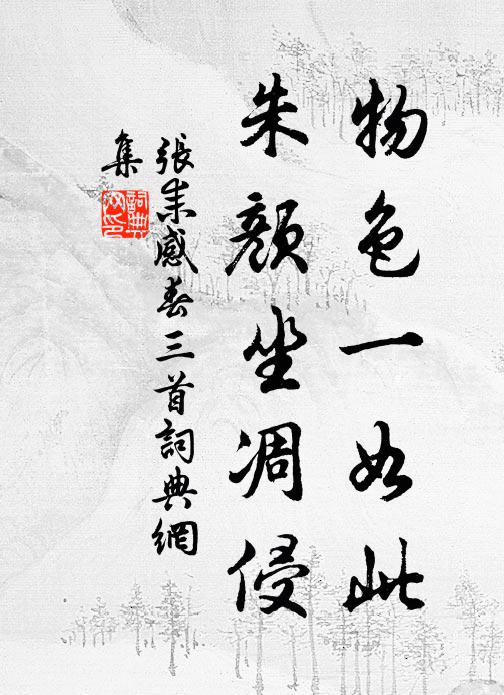 物色一如此
朱顏坐凋侵
張耒感春三首詞典網
集
詞典
网印